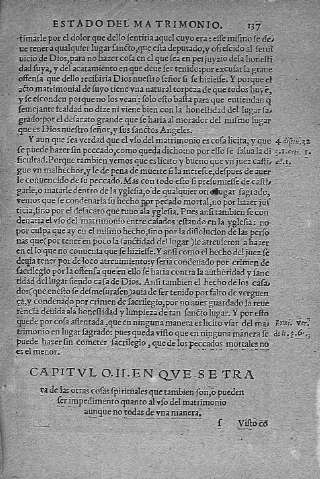 ESTADO DEL MATRIMONIO. 137
timarle por el dolor que dello sentiria aquel cuyo era: esse mismo se de-
ue tener a qualquier lugar sancto, que esta deputado, y offrescido al serui
uicio de Dios, para no hazer cosa en el que sea en perjuyzio de la honesti
dad suya, y del acatamiento en que deue ser tenido: por escusar la graue
offensa que dello recibiria Dios nuestro señor si se hiziesse. Y porque el
acto matrimonial de suyo tiene vna natural torpeza de que todos huyẽ,
y se esconden porque no los vean: solo esto basta para que entiendan q̃
semejante fealdad no dize ni viene bien con la honestidad del lugar sa-
grado: por el desacato grande que se haria al morador del mismo lugar
que es Dios nuestro señor, y sus sanctos Angeles.
Y aun que sea verdad que el vso del matrimonio es cosa licita, y que
se puede hazer sin peccado, como queda dicho no por esso se salua la di
ficultad. Porque tambien vemos que es licito y bueno que vn juez casti-
gue vn malhechor, y le de pena de muerte si la meresce, despues de auer
le conuencido de su pecado. Mas con todo esso si presumiesse de casti-
garle, o matarle dentro de la yglesia, o de qualquier otro lugar sagrado,
vemos que se condenaria su hecho por pecado mortal, no por hazer jus
ticia, sino por el desacato que tuuo a la yglesia. Pues ansi tambien se con
denaria el vso del matrimonio entre casados estando en la yglesia: no
por culpa que ay en el mismo hecho, sino por la dissolucion de las perso
nas que (por tener en poco la sanctidad del lugar) se atreuieron a hazer
en el lo que no conuenia que se hiziesse. Y ansi como el hecho del juez se
deuia tener por de loco atreuimiento y seria condenado por crimen de
sacrilegio por la offensa que en ello se haria contra la authoridad y sanc
tidad del lugar siendo casa de Dios. Ansi tambien el hecho de los casa-
dos, que en esto se desmesurasen, auia de ser tenido por falto de verguen
ça, y condenado por crimen de sacrilegio, por no auer guardado la reue
rencia deuida a la honestidad y limpieza de tan sancto lugar. Y por esto
quede por cosa assentada, que en ninguna manera es licito vsar del ma
trimonio en lugar sagrado: pues queda visto que en ninguna manera se
puede hazer sin cometer sacrilegio, que de los pecados mortales no
es el menor.
CAPITVLO. II. EN QVE SE TRA
ta de las otras cosas spirituales que tambien son, o pueden
ser impedimento quanto al vso del matrimonio
aunque no todas de vna manera.
s Visto cõ